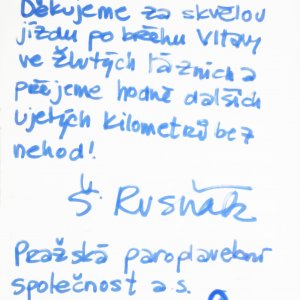 Děkujeme za skvělou
jízdu po břehu Vltavy
ve žlutých lázních a
přejeme hodně dalších
ujetých kilometrů bez
nehod!
Š. Rusňák
Pražská paroplavební
společnost a.s.